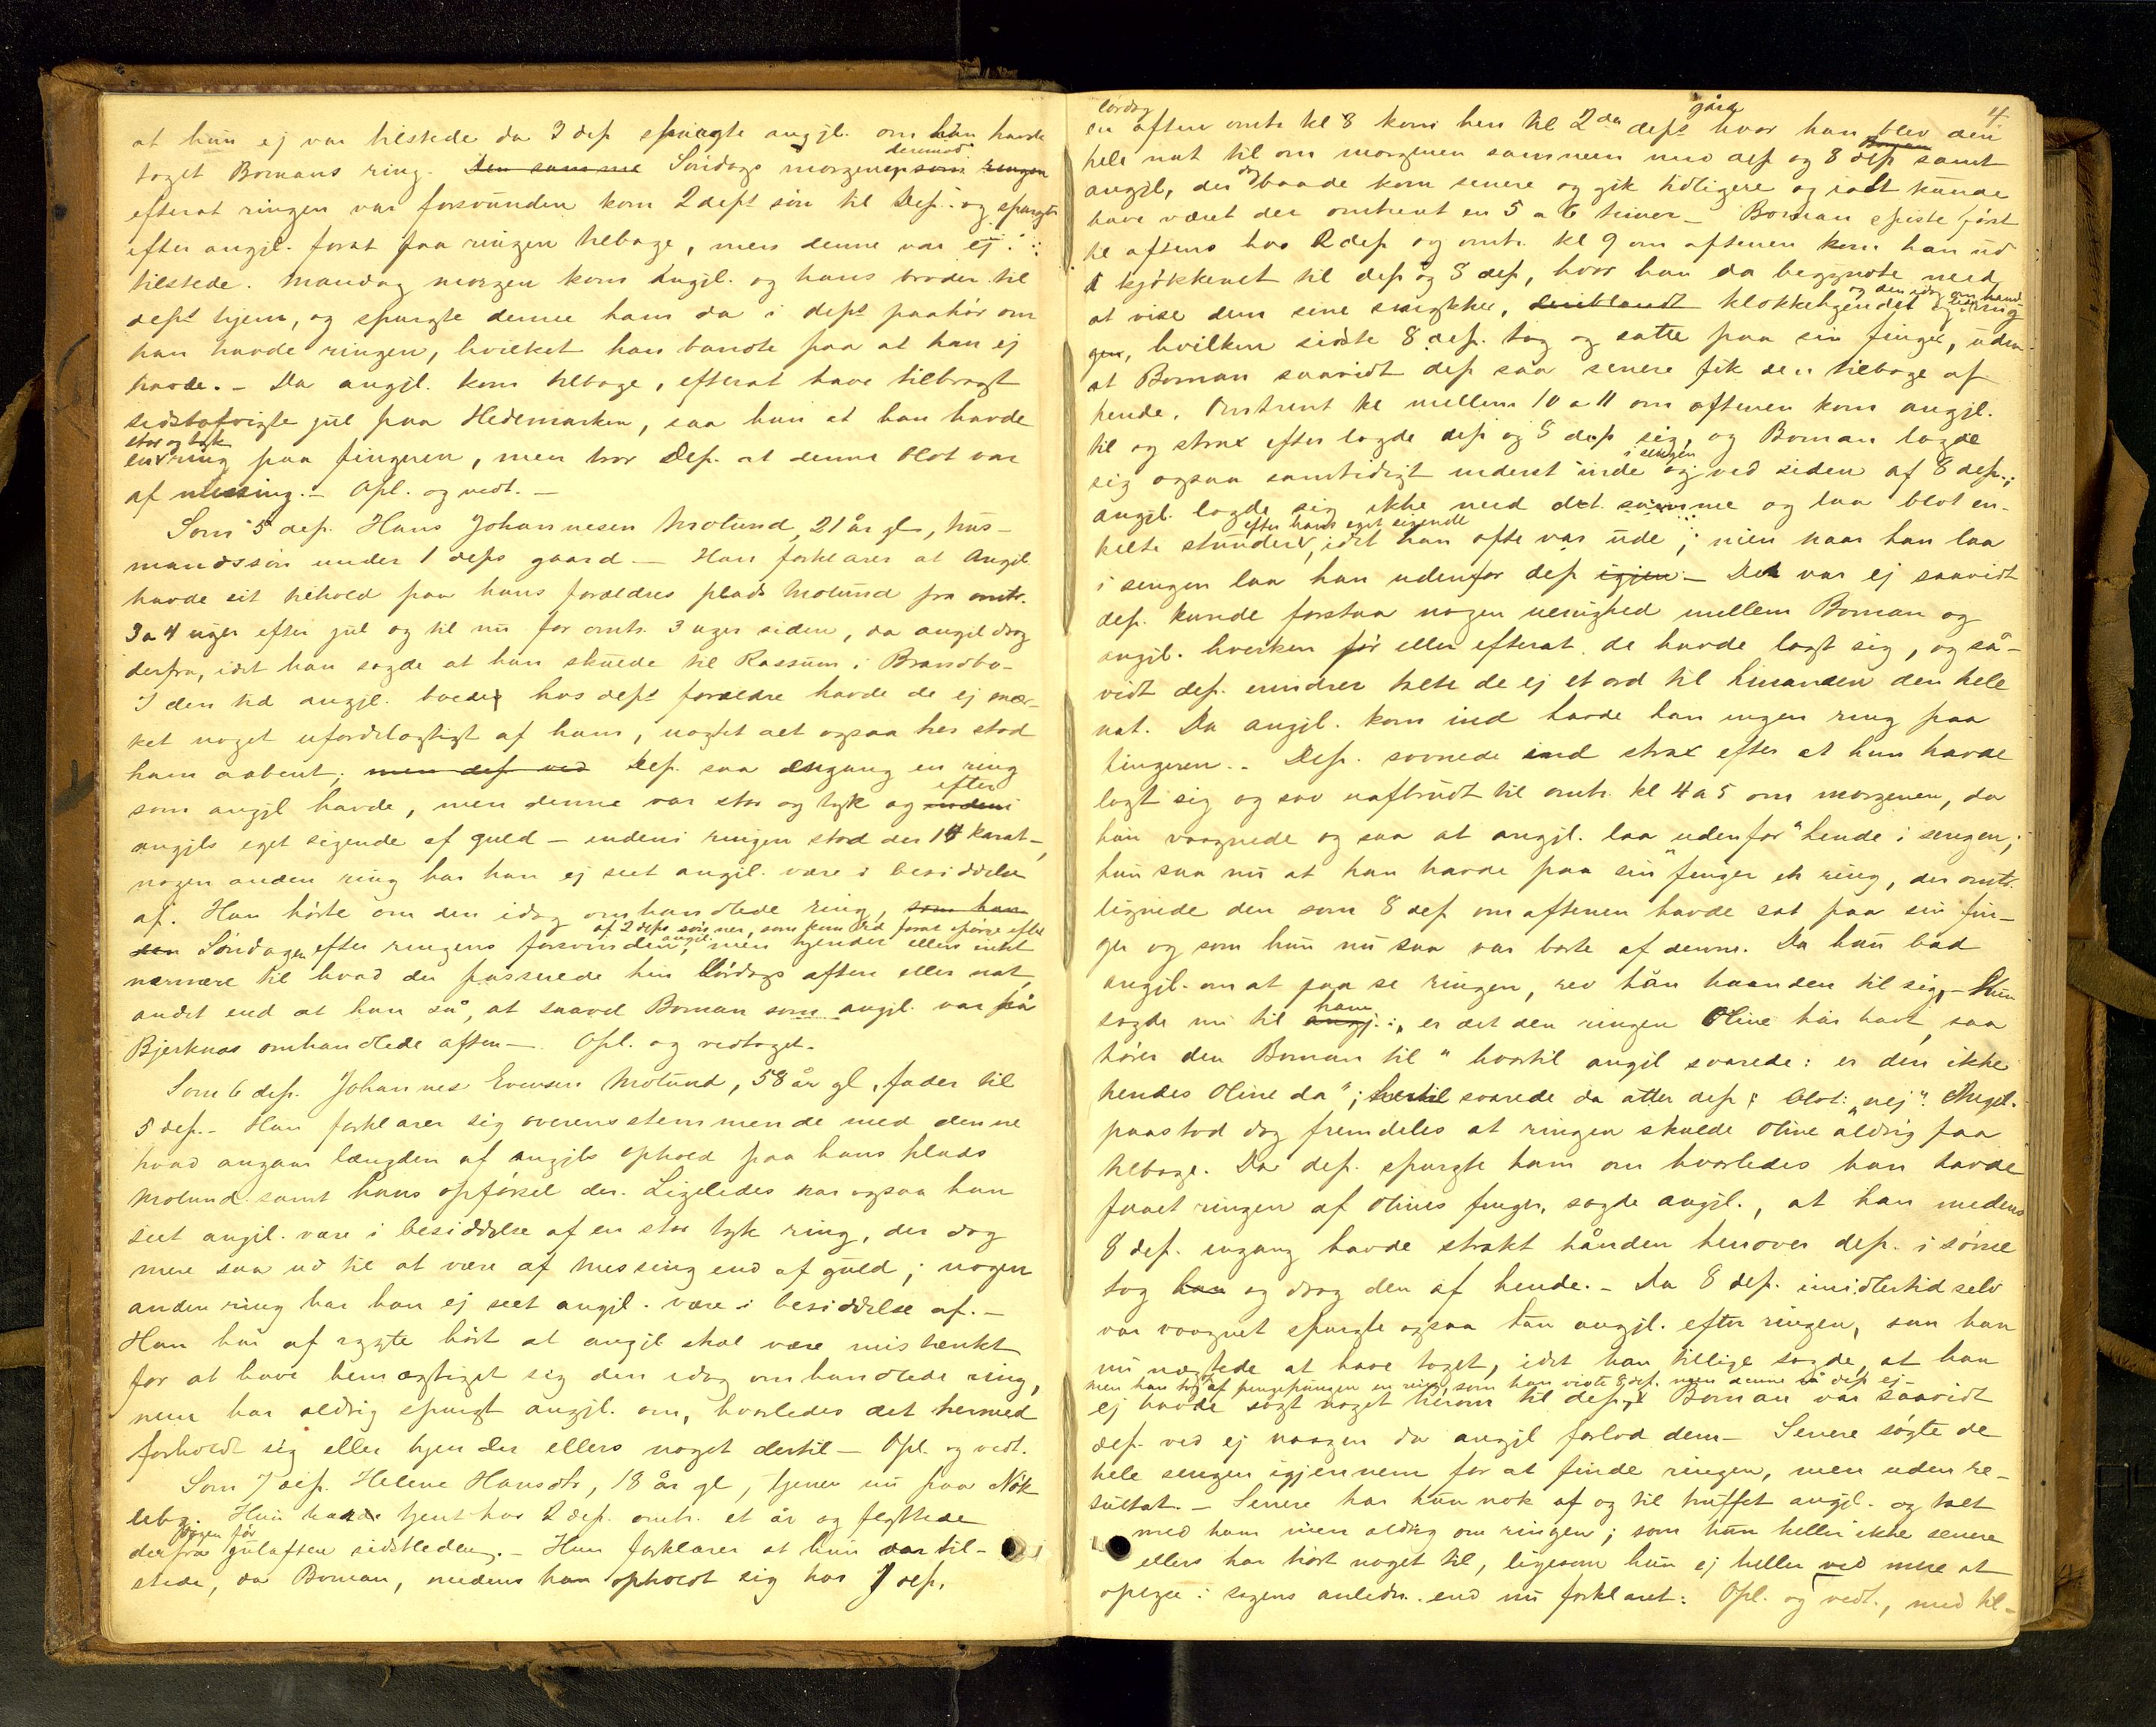 at hun ej var tilstede da 3 dep spurgte angjl. om han havde
taget Bomans ring. Den samme Søndags morgen derimod som ringen
efterat ringen var forsvunden kom 2 deps søn til Dep. og spurgte
efter angjl. forat faa ringen tilbage, men denne var ej
tilstede. Mandag morgen kom Angjl. og hans broder til
deps hjem, og spurgte denne ham da i deps paahør om
han havde ringen, hvilket han bandte paa at han ej
havde. – Da angjl. kom tilbage, efterat have tilbragt
sidstafvigte jul paa Hedemarken, saa hun at han havde
stor og tyk
en ring paa fingeren, men tror Dep. at denne blot var
af messing. – Opl. og vedt. –
Som 5 dep. Hans Johannesen Molund, 21 år gl, hus-
mandssøn under 1 deps gaard. – Han forklarer at Angjl.
havde sit tilhold paa hans forældres plads Molund fra omtr.
3 a 4 uger efter jul og til nu for omtr. 3 uger siden, da angjl drog
derfra, idet han sagde at han skulde til Rassum i Brandbu –
I den tid angjl. boede hos deps forældre havde de ej mær-
ket noget ufordelagtigt af ham, uagtet alt ogsaa her stod
ham aabent; men dep ved Dep. saa engang en ring
som angjl havde, men denne var stor og tyk og efter indeni
angjls eget sigende af guld – indeni ringen stod der 14 karat –,
nogen anden ring har han ej seet angjl. være i besiddelse
af. Han hørte om den idag omhandlede ring, som han
af 2 deps sønner, som kom did forat spørge efter angjl.
den Søndagen efter ringens forsvinden, men kjender ellers intet
nærmere til hvad der passerede hin Lørdags aften eller nat,
andet end at han så, at saavel Boman som angjl. var på
Bjerknæs omhandlede aften –. Opl. og vedtaget.
Som 6 dep. Johannes Evensen Molund, 58 år gl, fader til
5 dep. – Han forklarer sig overensstemmende med denne
hvad angaar længden af angjls ophold paa hans plads
Molund samt hans opførsel der. Ligeledes har ogsaa han
seet angjl. være i besiddelse af en stor tyk ring, der dog
mere saa ud til at være af messing end af guld; nogen
anden ring har han ej seet angjl. være i besiddelse af. –
Han har af rygte hørt at angjl skal være mistænkt
for at have bemægtiget sig den idag omhandlede ring,
men har aldrig spurgt angjl. om, hvorledes det hermed
forholdt sig eller kjender ellers noget dertil – Opl. og vedt.
Som 7 dep. Helene Hansdtr, 18 år gl, tjener nu paa Nøk-
leby. Hun havde tjent hos 2 dep. omtr. et år og flyttede
dagen før
derfra julaften sidstleden. – Hun forklarer at hun var til-
stede, da Boman, medens han opholdt sig hos 1 dep.
4
lørdag
en aften omtr kl 8 kom hen til 2den deps gård hvor han blev den
hele nat til om morgenen sammen med dep og 8 dep Boman samt
angjl, der dog baade kom senere og gik tidligere og ialt kunde
have været der omtrent en 5 a 6 timer – Boman spiste først
til aftens hos 2 dep og omtr. kl 9 om aftenen kom han ud
i kjøkkenet til dep og 8 dep, hvor han da begyndte med
og den idag omhand-
at vise dem sine smykker, deriblandt klokkekjendet og lede ring
gen, hvilken sidste 8 dep. tog og satte paa sin finger, uden
at Boman saavidt dep saa senere fik den tilbage af
hende. Omtrent kl mellem 10 a 11 om aftenen kom angjl.
til og strax efter lagde dep og 8 dep sig, og Boman lagde
i sengen
sig ogsaa samtidigt inderst inde og ved siden af 8 dep.;
angjl. lagde sig ikke med det samme og laa blot en-
efter hans eget sigende
kelte stunder, idet han ofte var ude; men naar han laa
i sengen laa han udenfor dep igjen. – Det var ej saavidt
dep. kunde forstaa nogen uenighed mellem Boman og
angjl. hverken før eller efterat de havde lagt sig, og så-
vidt dep. erindrer talte de ej et ord til hinanden den hele
nat. Da angjl. kom ind havde han ingen ring paa
fingeren. – Dep. sovnede ind strax efter at hun havde
lagt sig og sov uafbrudt til omtr. kl 4 a 5 om morgenen, da
hun vaagnede og saa at angjl. laa udenfor hende i sengen;
hun saa nu at han havde paa sin finger en ring, der omtr.
lignede den som 8 dep om aftenen havde sat paa sin fin-
ger og som hun nu saa var borte af denne. Da hun bad
angjl. om at faa se ringen, rev han haanden til sig, – Hun
sagde nu til angj. ham: „er det den ringen Oline har havt, saa
hører den Boman til" hvortil angjl svarede: er den ikke
hendes Oline da"; hertil svarede da atter dep; blot: „nej". Angjl.
paastod dog fremdeles at ringen skulde Oline aldrig faa
tilbage. Da dep. spurgte ham om hvorledes han havde
faaet ringen af Olines finger, sagde angjl., at han medens
8 dep. engang havde strakt hånden henover dep. i søvne
tog han og drog den af hende. – Da 8 dep. imidlertid selv
var vaagnet spurgte ogsaa han angjl. efter ringen, som han
nu nægtede at have taget, idet han tillige sagde, at han
men han tog af pengepungen en ring, som han viste 8 dep. men denne så dep ej –
ej havde sagt noget herom til dep; Boman var saavidt
dep. ved ej vaagen da angjl forlod dem – Senere søgte de
hele sengen igjennem for at finde ringen, men uden re-
sultat. – Senere har hun nok af og til truffet angjl. og talt
med ham men aldrig om ringen; som hun heller ikke senere
ellers har hørt noget til, ligesom hun ej heller ved mere at
oplyse i sagens anledn. end nu forklaret: Opl. og vedt., med til-